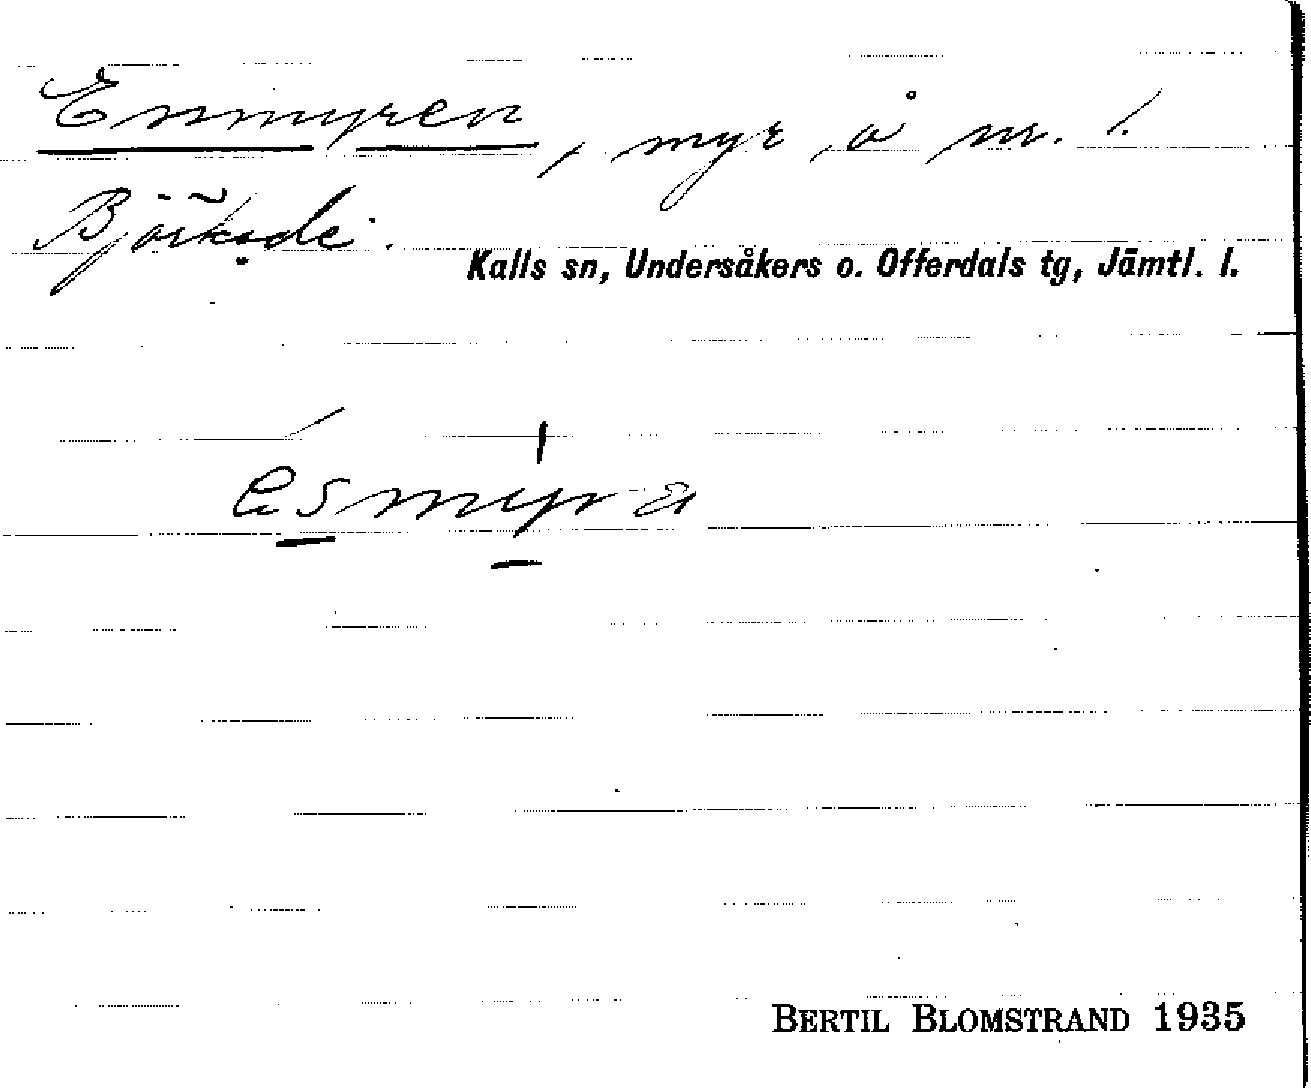 Enmyren, myr, å nr. 1.
Björkede.
Kalls sn, Undersåkers o. Offerdals tg, Jämtl. l.
BERTIL BLOMSTRAND 1935